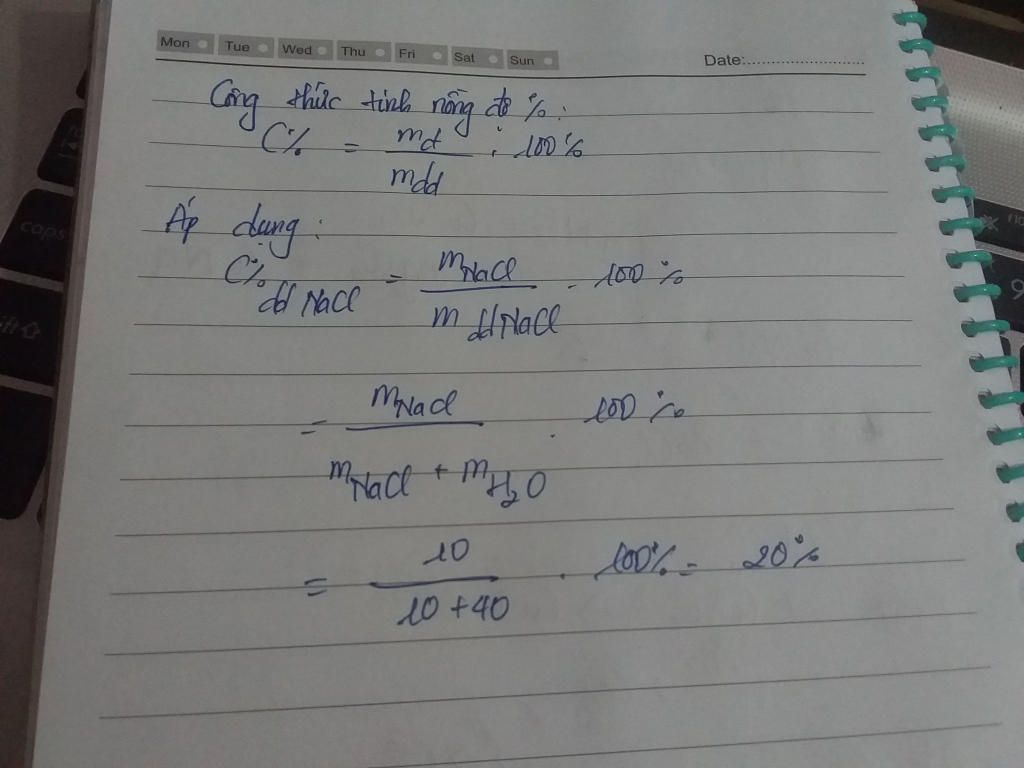 Mon Tue Wed Thu Fri Sat Sun Date:
Công thức tính nồng độ %:
C% = mct / mdd . 100%
Áp dụng:
C% dd NaCl = mNaCl / m ddNaCl . 100%
= mNaCl / mNaCl + mH2O . 100%
= 10 / 10 + 40 . 100% = 20%
caps